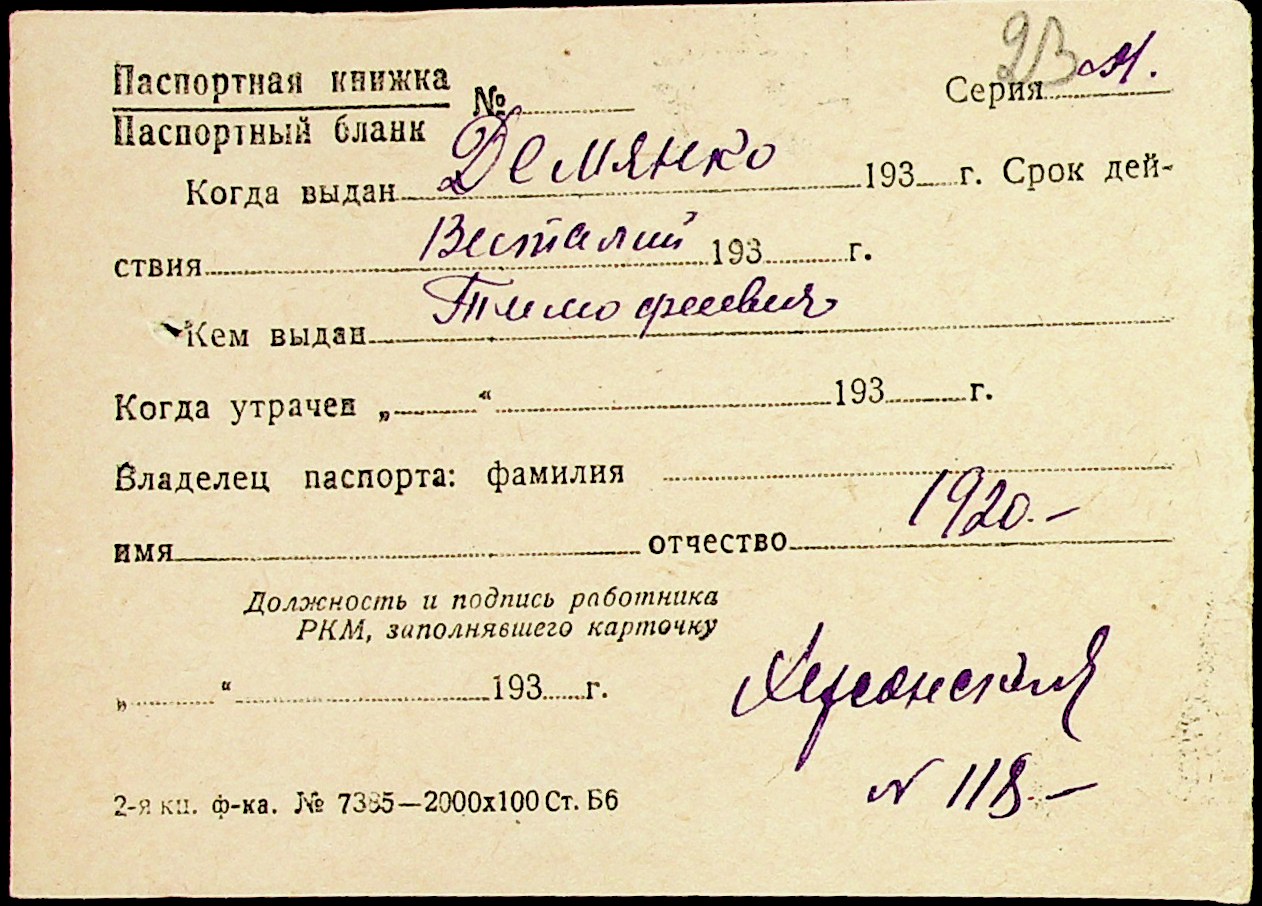 Паспортная книжка
Паспортный бланк
№
Серия
23
Демянко
Когда выдан 193 г. Срок дей-
Виталий
ствия 193 г.
Тимофеевич
Кем выдан
Когда утрачен „ “ 193 г.
Владелец паспорта: фамилия
1920.–
имя отчество
Должность и подпись работника
РКМ, заполнявшего карточку
„ “ 193 г.
Херсонская
N 118.–
2-я кн. ф-ка. № 7385—2000х100 Ст. Б6